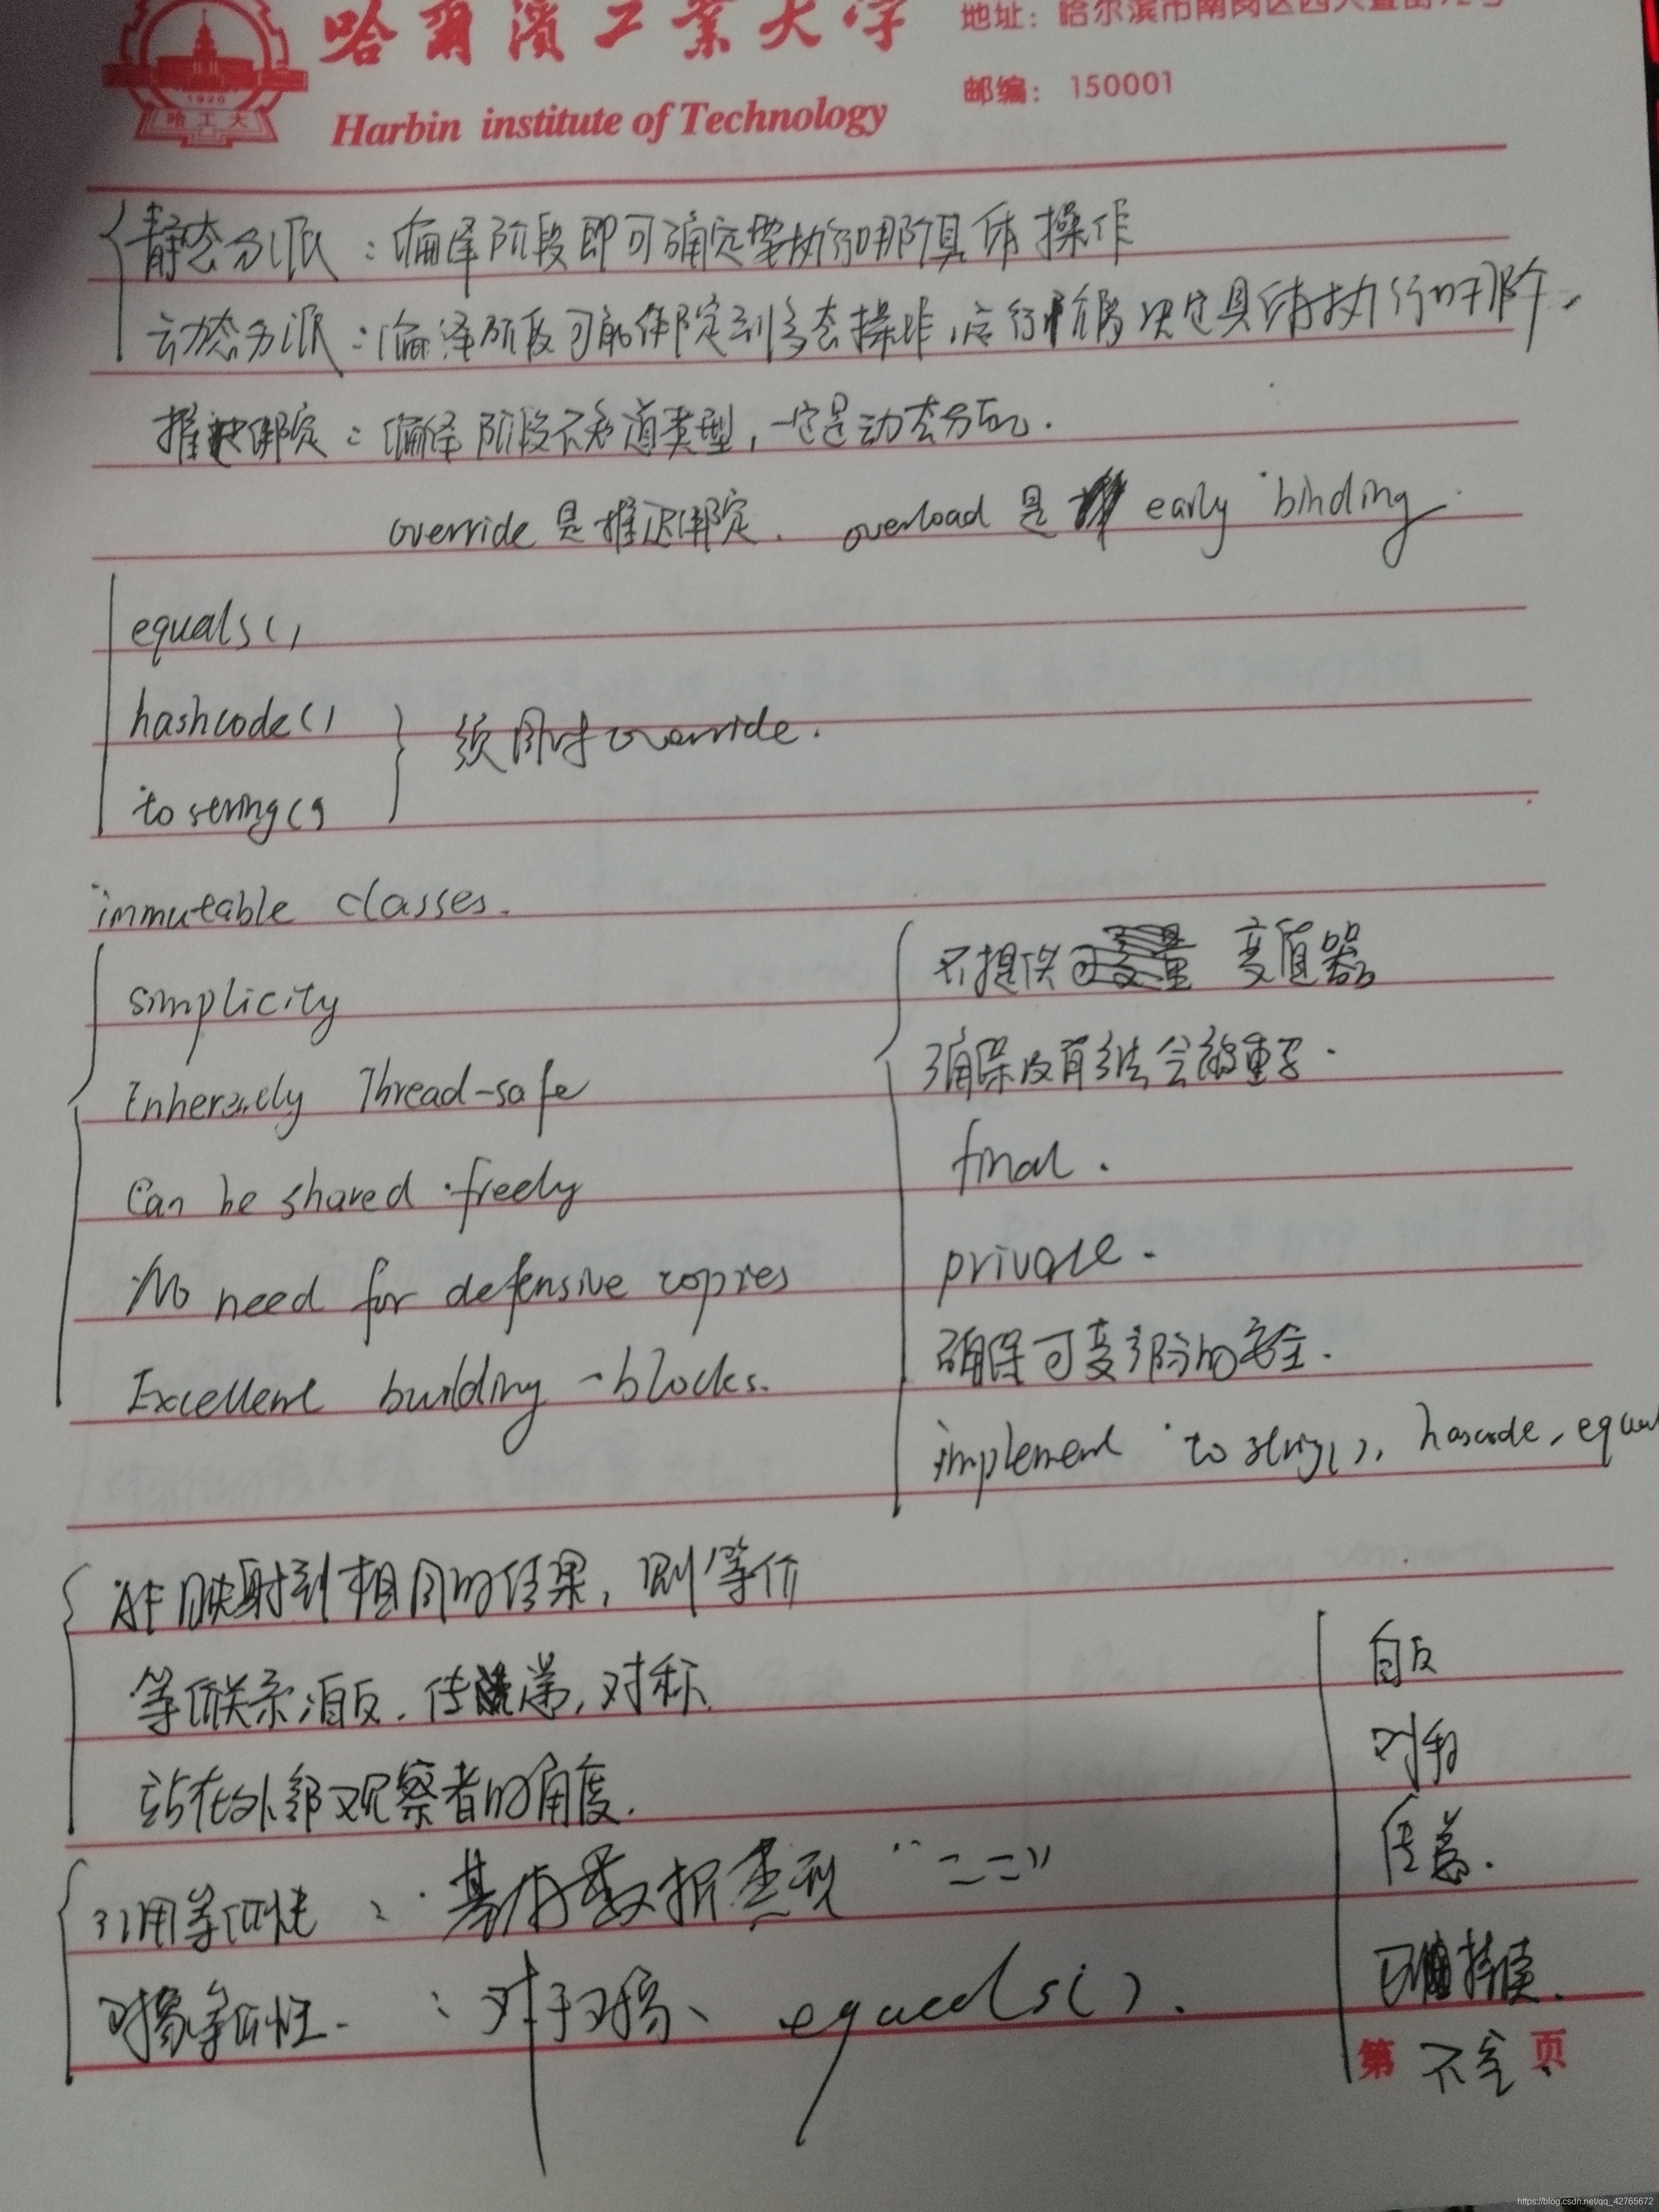 哈爾濱工業大学
Harbin institute of Technology
地址：哈尔滨市南岗区西大直街
邮编：150001
1920
哈工大
静态分派：编译阶段即可确定要执行哪个具体操作
动态分派：编译阶段可能绑定到多态操作，运行阶段决定具体执行哪个。
推迟绑定：编译阶段不知道类型，一定是动态分配.
override 是推迟绑定. overload 是 early binding.
equals()
hashcode()
to string()
须同时override.
immutable classes.
simplicity
Inherently Thread-safe
Can be shared freely
No need for defensive copies
Excellent building-blocks.
不提供 变值器
确保没有方法会被重写.
final.
private.
确保可变部分的安全.
implement to string(), hascode, equal
AF映射到相同的结果，则等价
等价关系:自反,传递,对称.
站在外部观察者的角度.
自反
对称
传递.
持续.
不含
引用等价性：基本数据类型 "=="
对象等价性：对于对象、equals().
第 页
https://blog.csdn.net/qq_42765672